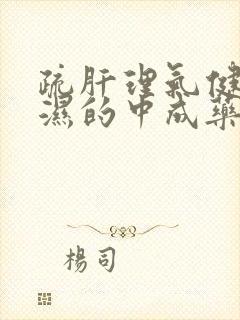 疏肝理气健
濕的中成藥
楊司